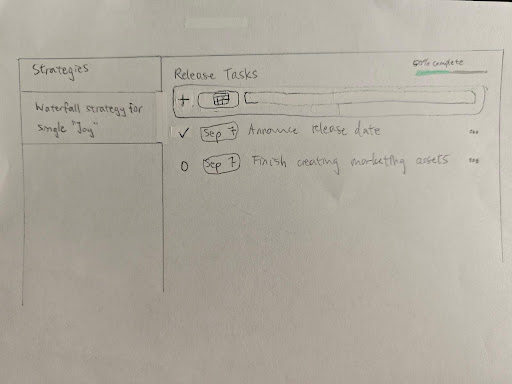 Strategies
Waterfall strategy for
single "Joy"
Release Tasks
50% complete
+
Sep 7 Announce release date
Sep 7 Finish creating marketing assets